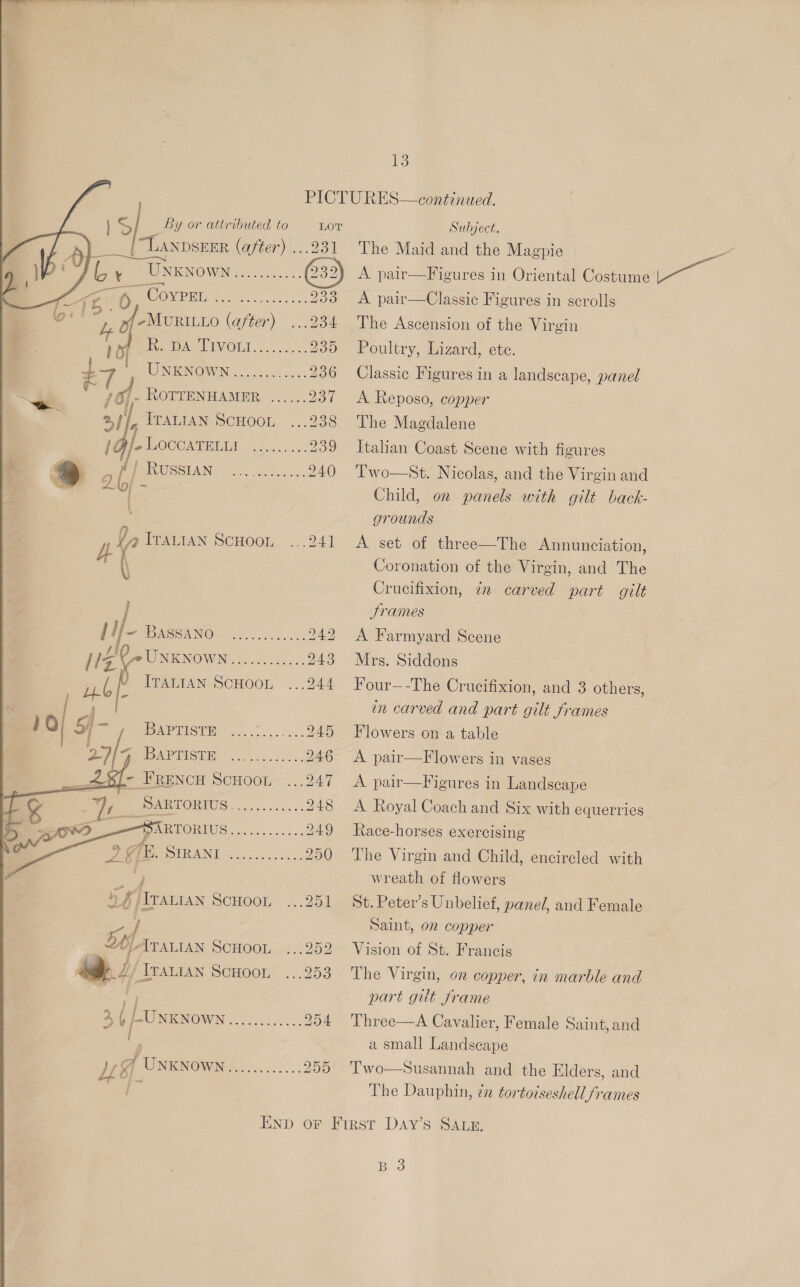 13
PICTURES—continued.
By or attributed to LOT Subject.
LANDSEER (after) ...231 The Maid and the Magpie
UNKNOWN ............ 232 A pair—Figures in Oriental Costume
COYPEL ............ 233 A pair—Classic Figures in scrolls
MURILLO (after) ...234 The Ascension of the Virgin
R. DA TIVOLI ......... 235 Poultry, Lizard, etc.
UNKNOWN ............ 236 Classic Figures in a landscape, panel
ROTTENHAMER ...... 237 A Reposo, copper
ITALIAN SCHOOL ...238 The Magdalene
LOCCATELLI ......... 239 Italian Coast Scene with figures
RUSSIAN ............ 240 Two—St. Nicolas, and the Virgin and
Child, on panels with gilt back-
grounds
ITALIAN SCHOOL ...241 A set of three—The Annunciation,
Coronation of the Virgin, and The
Crucifixion, in carved part gilt
frames
BASSANO ............ 242 A Farmyard Scene
UNKNOWN ............ 243 Mrs. Siddons
ITALIAN SCHOOL ...244 Four--The Crucifixion, and 3 others,
in carved and part gilt frames
BAPTISTE ............ 245 Flowers on a table
BAPTISTE ............ 246 A pair—Flowers in vases
FRENCH SCHOOL ...247 A pair—Figures in Landscape
SARTORIUS ............ 248 A Royal Coach and Six with equerries
SARTORIUS ............ 249 Race-horses exercising
E. SIRANI ............ 250 The Virgin and Child, encircled with
wreath of flowers
ITALIAN SCHOOL ...251 St. Peter's Unbelief, panel, and Female
Saint, on copper
ITALIAN SCHOOL ...252 Vision of St. Francis
ITALIAN SCHOOL ...253 The Virgin, on copper, in marble and
part gilt frame
UNKNOWN ............ 254 Three—A Cavalier, Female Saint, and
a small Landscape
UNKNOWN ............ 255 Two—Susannah and the Elders, and
The Dauphin, in tortoiseshell frames
END OF FIRST DAY'S SALE.
B 3